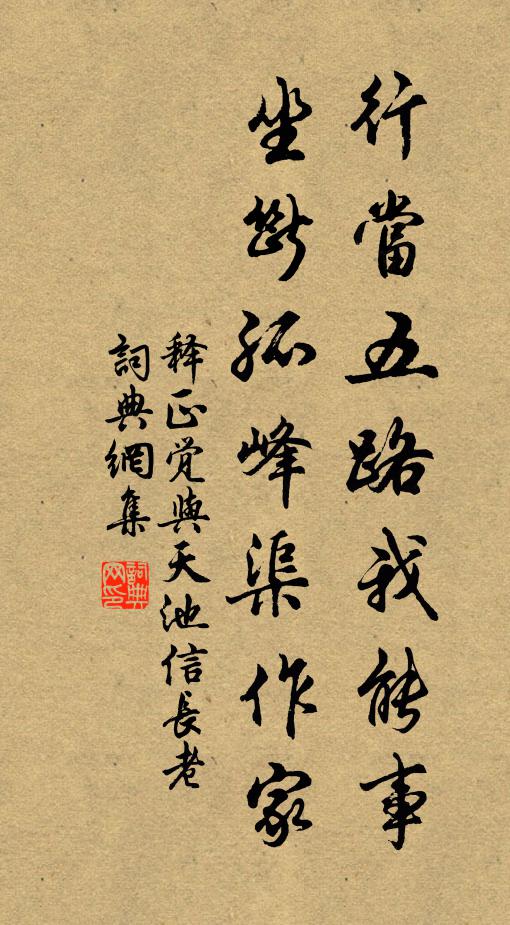 行當五路我能事
坐斷孤峰渠作家
释正觉與天池信長老
詞典網集
詞典網印